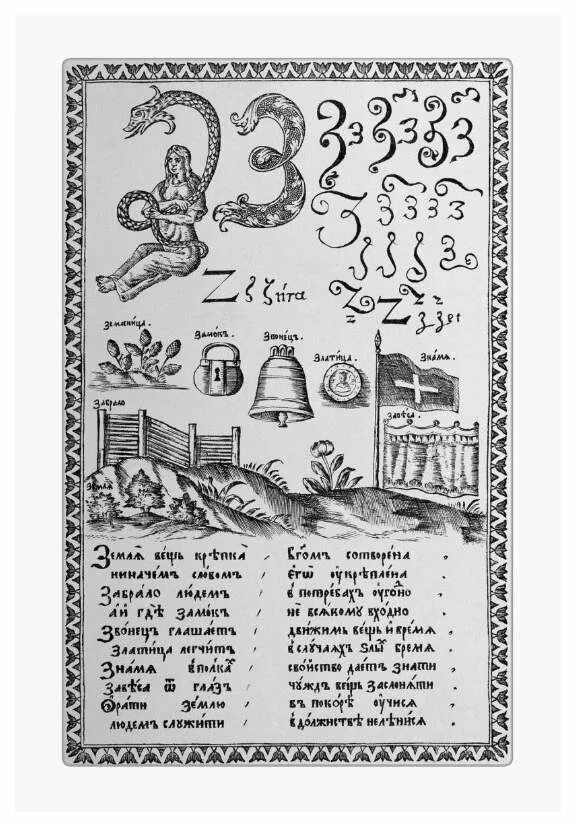 З з З з З з
З з з з
Z ξ ζита
Земляница.
Замо́къ.
Звоне́цъ.
Златица.
Зна́мѧ.
Забрало
Завѣса.
Землѧ
Землѧ̀ ве́щь крѣпка̀ , бг҃омъ сотворе́на ,
ниначе́мъ сло́вомъ , є҆гѡ̀ ᲂу҆крѣпле́на .
Забрало лю́демъ , в потре́бахъ ᲂу҆го́дно
а҆ и҆ гдѣ̀ замо́къ , не всѧ́кому вхо́дно .
Зво́нецъ глаша́етъ , дви́жимь ве́щь и҆ вре́мѧ ,
Златица легчи́тъ , в слу́чаѧхъ ѕлы́ бре́мѧ .
Зна́мѧ в полка̀ , сво́йство дае́тъ зна́ти ,
Заве́са ѿ гла́зъ , чу́ждъ ве́щь заслонѧ́ти .
Ѻ҆ра́ти зе́млю , въ поко́рѣ ᲂу҆чи́сѧ ,
лю́демъ служи́ти , в до́лжнствѣ нелѣни́сѧ .